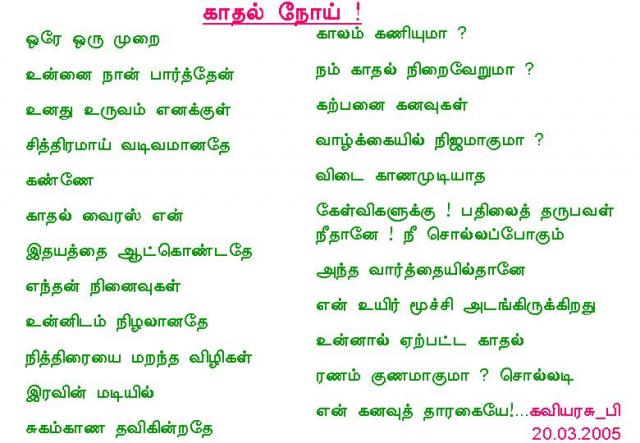 காதல் நோய் !
ஒரே ஒரு முறை
உன்னை நான் பார்த்தேன்
உனது உருவம் எனக்குள்
சித்திரமாய் வடிவமானதே
கண்ணே
காதல் வைரஸ் என்
இதயத்தை ஆட்கொண்டதே
எந்தன் நினைவுகள்
உன்னிடம் நிழலானதே
நித்திரையை மறந்த விழிகள்
இரவின் மடியில்
சுகம்காண தவிகின்றதே
காலம் கணியுமா ?
நம் காதல் நிறைவேறுமா ?
கற்பனை கனவுகள்
வாழ்க்கையில் நிஜமாகுமா ?
விடை காணமுடியாத
கேள்விகளுக்கு ! பதிலைத் தருபவள்
நீதானே ! நீ சொல்லப்போகும்
அந்த வார்த்தையில்தானே
என் உயிர் மூச்சி அடங்கிருக்கிறது
உன்னால் ஏற்பட்ட காதல்
ரணம் குணமாகுமா ? சொல்லடி
என் கனவுத் தாரகையே!...கவியரசு_பி
20.03.2005